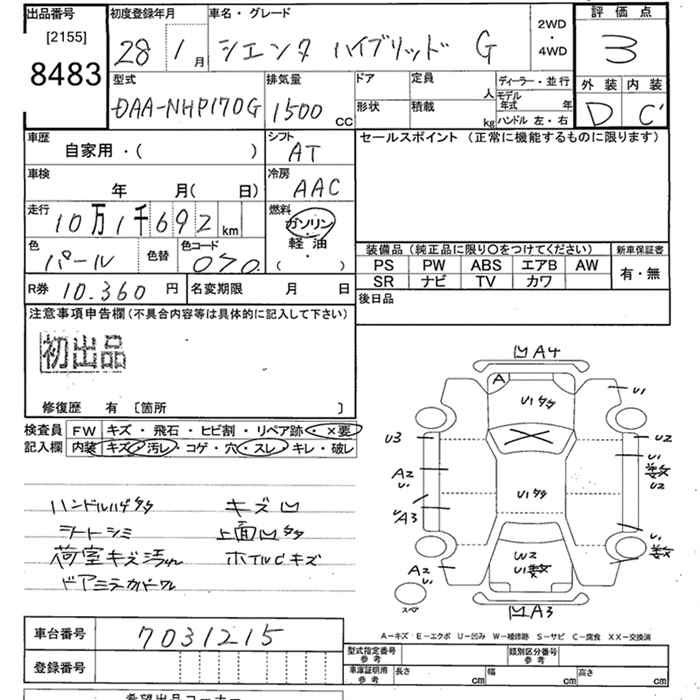 出品番号
[2155]
8483
初度登録年月
28 1月
車名・グレード
シエンタ ハイブリッド G
2WD
・
4WD
評価点
3
外装 内装
D C'
型式
DAA-NHP170G
排気量
1500 CC
ドア 定員 人
形状 積載 kg
ディーラー・並行
モデル年式 年
ハンドル 左・右
車歴
自家用・( )
シフト
AT
セールスポイント (正常に機能するものに限ります)
車検
年 月( 日)
冷房
AAC
走行
10万1千692 km
燃料
ガソリン
・
軽油
・
( )
色
パール
色替
色コード
070
装備品(純正品に限り○をつけてください)
新車保証書
PS PW ABS エアB AW
SR ナビ TV カワ
有・無
R券 10.360 円
名変期限 月 日
後日品
注意事項申告欄(不具合内容等は具体的に記入して下さい)
初出品
修復歴 有 〔箇所 〕
検査員
記入欄
FW キズ・飛石・ヒビ割・リペア跡・×要
内装 キズ・汚レ・コゲ・穴・スレ・キレ・破レ
ハンドルハゲタタ キズ凹
シートシミ 上面凹タタ
荷室キズ汚れ ホイルCキズ
ドアミラーカバーワレ
凹A4
A
U1タタ
U1
U3
U2
A2
U1
数
U2
U1タタ
U
A3
W2
U1数
A2
U1
数
スペア
凹A3
A-キズ E-エクボ U-凹み W-補修跡 S-サビ C-腐食 XX-交換済
車台番号 7031215
登録番号
型式指定番号
参考
類別区分番号
参考
車庫証明用
参考
長さ cm 幅 cm 高さ cm
希望出品コーナー